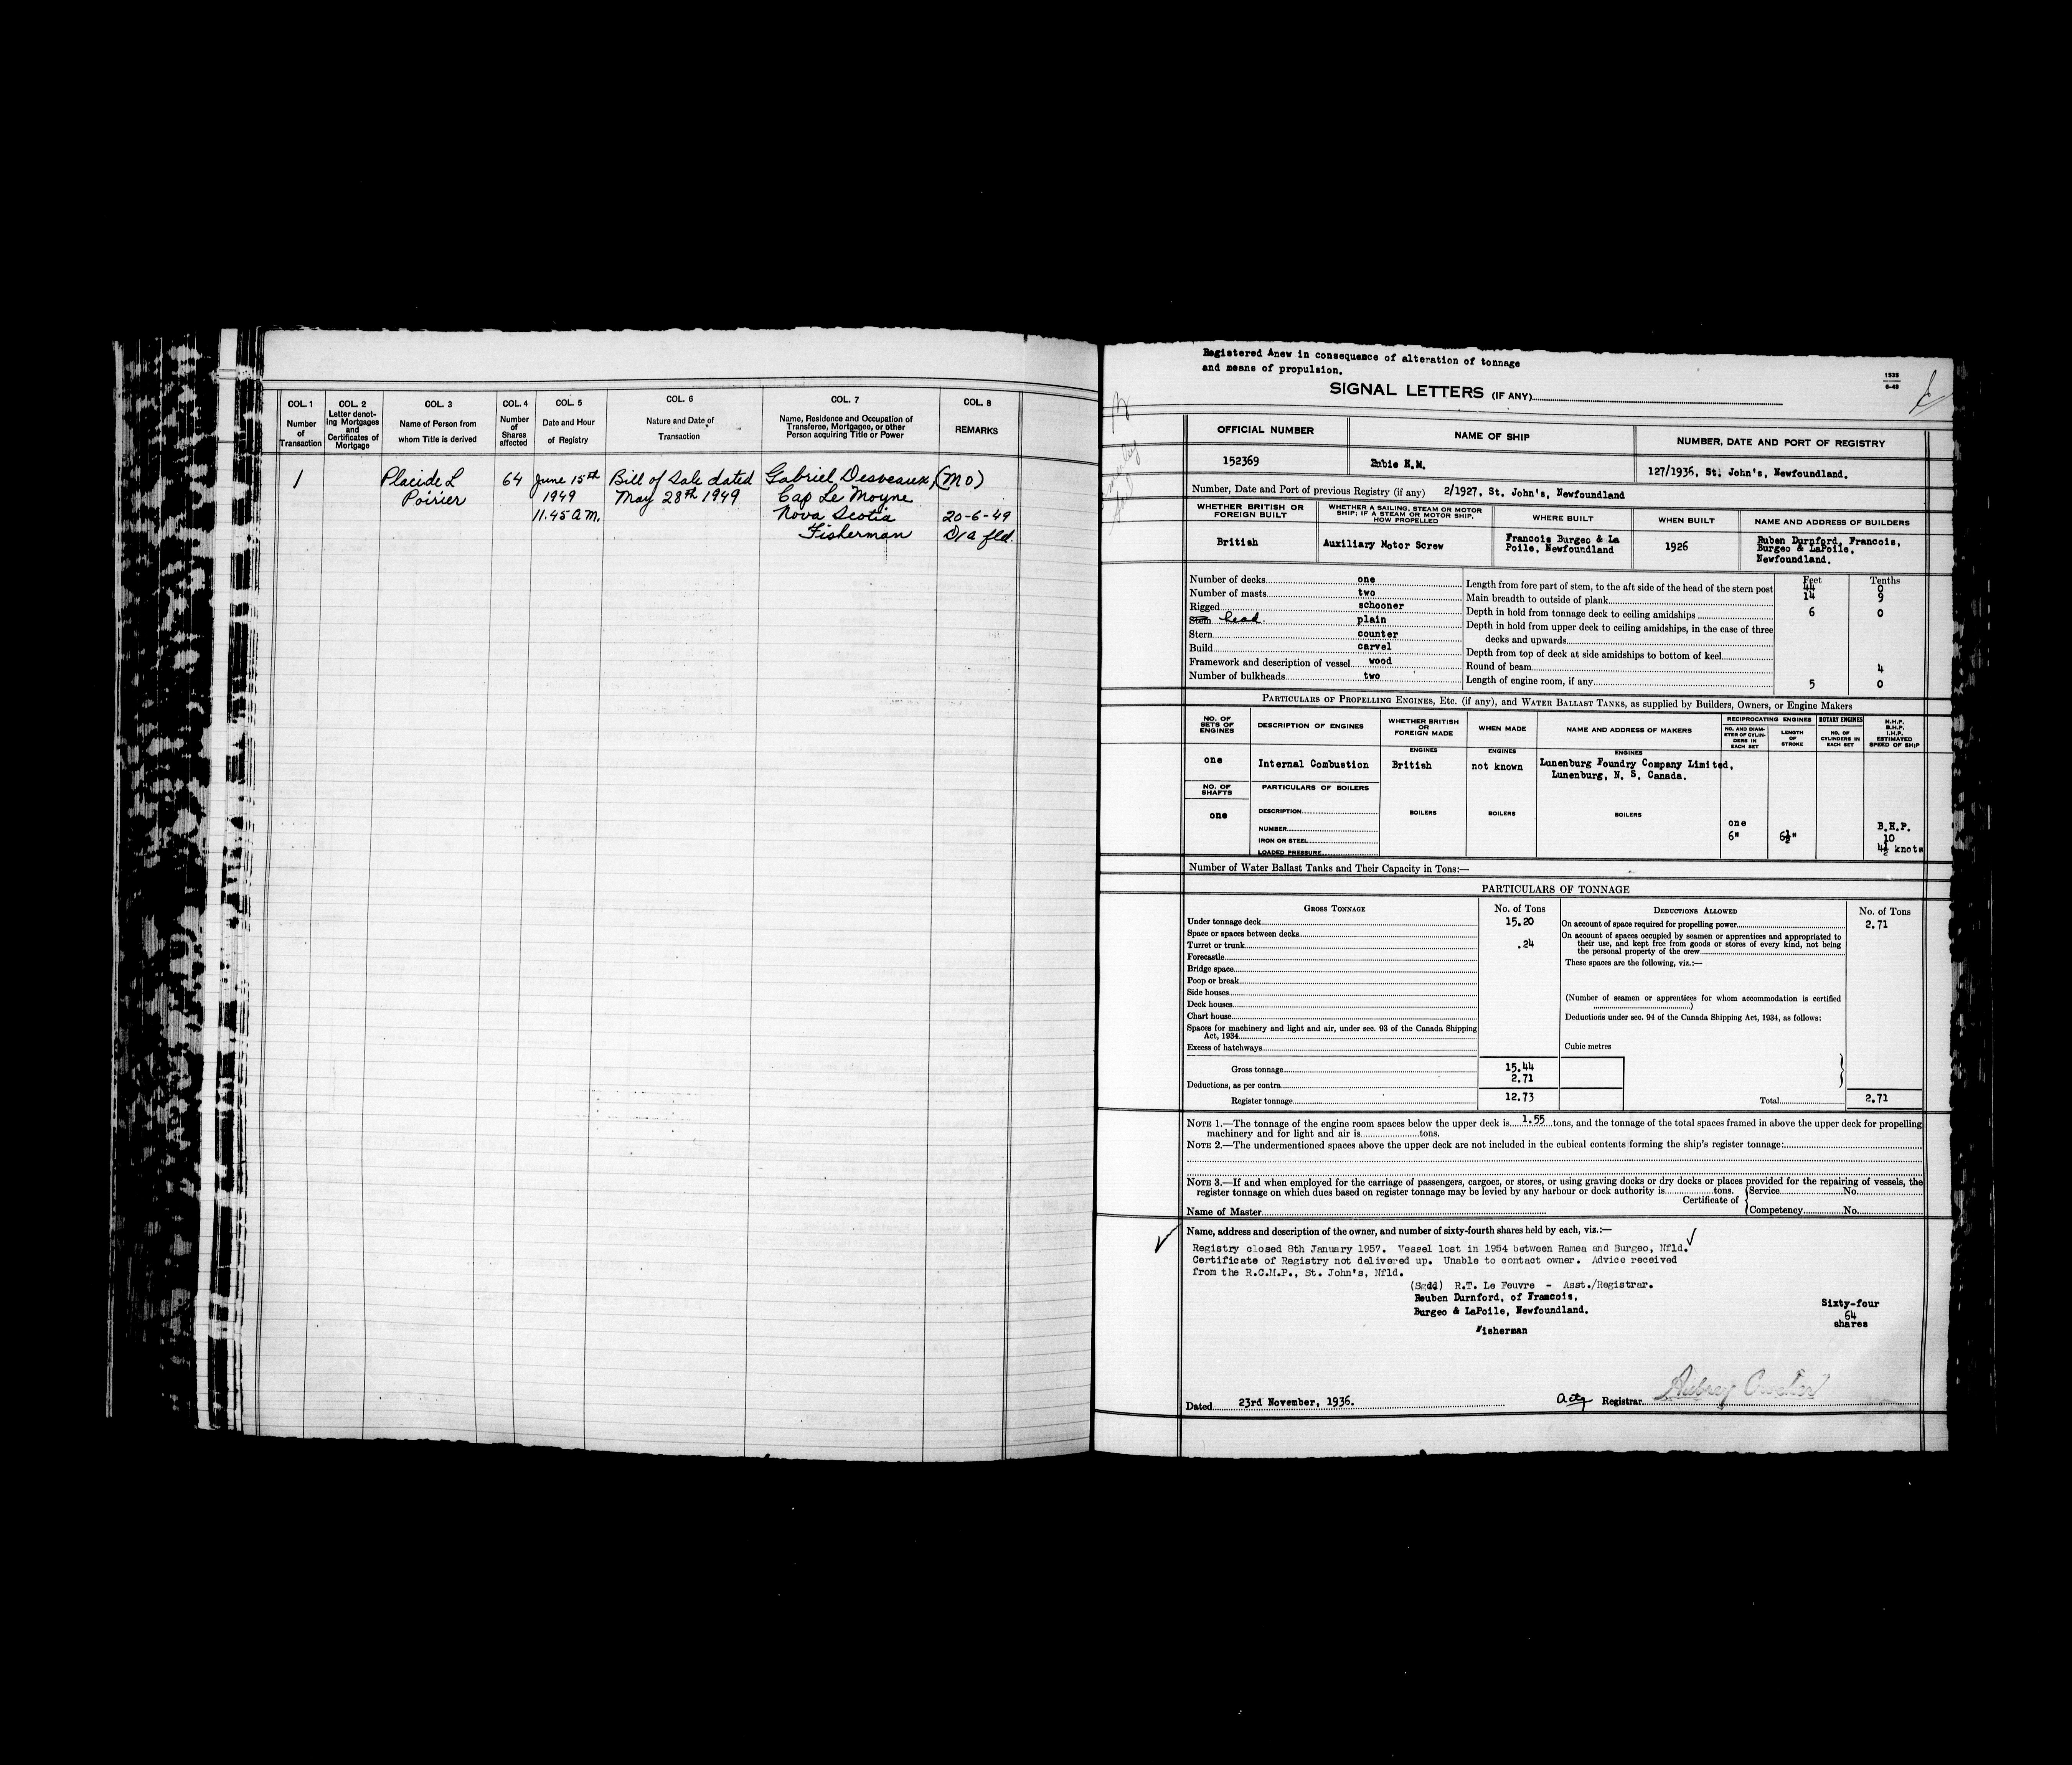 COL. 1 COL. 2 COL. 3 COL. 4 COL. 5 COL. 6 COL. 7 COL. 8
Number of Transaction
Letter denoting Mortgages and Certificates of Mortgage
Name of Person from whom Title is derived
Number of Shares affected
Date and Hour of Registry
Nature and Date of Transaction
Name, Residence and Occupation of Transferee, Mortgagee, or other Person acquiring Title or Power
REMARKS
1 Placide L 64 June 15th Bill of Sale dated Gabriel Desveaux, (MO)
Poirier 1949 May 28th 1949 Cap Le Moyne
11.45 A.M. Nova Scotia 20-6-49
Fisherman D/a fld.
Registered Anew in consequence of alteration of tonnage
and means of propulsion.
SIGNAL LETTERS (IF ANY)
1535
6-48
OFFICIAL NUMBER NAME OF SHIP NUMBER, DATE AND PORT OF REGISTRY
152369 H.M. 127/1936, St. John's, Newfoundland.
Number, Date and Port of previous Registry (if any) 2/1927, St. John's, Newfoundland
WHETHER BRITISH OR FOREIGN BUILT
WHETHER A SAILING, STEAM OR MOTOR SHIP; IF A STEAM OR MOTOR SHIP, HOW PROPELLED
WHERE BUILT WHEN BUILT NAME AND ADDRESS OF BUILDERS
British Auxiliary Motor Screw Francois Burgeo & La 1926 Ruben Durnford, Francois,
Poile, Newfoundland Burgeo & LaPoile,
Newfoundland.
Feet Tenths
Number of decks one Length from fore part of stem, to the aft side of the head of the stern post 44 0
Number of masts two Main breadth to outside of plank 14 9
Rigged schooner Depth in hold from tonnage deck to ceiling amidships 6 0
Stem head plain Depth in hold from upper deck to ceiling amidships, in the case of three
Stern counter decks and upwards
Build carvel Depth from top of deck at side amidships to bottom of keel
Framework and description of vessel wood Round of beam 4
Number of bulkheads two Length of engine room, if any 5 0
PARTICULARS OF PROPELLING ENGINES, ETC. (if any), and WATER BALLAST TANKS, as supplied by Builders, Owners, or Engine Makers
NO. OF SETS OF ENGINES
DESCRIPTION OF ENGINES
WHETHER BRITISH OR FOREIGN MADE
WHEN MADE
NAME AND ADDRESS OF MAKERS
RECIPROCATING ENGINES ROTARY ENGINES
NO. AND DIAMETER OF CYLINDERS IN EACH SET
LENGTH OF STROKE
NO. OF CYLINDERS IN EACH SET
N.H.P. B.H.P. I.H.P. ESTIMATED SPEED OF SHIP
ENGINES ENGINES ENGINES
one Internal Combustion British not known Lunenburg Foundry Company Limited,
Lunenburg, N. S. Canada.
NO. OF SHAFTS PARTICULARS OF BOILERS
one DESCRIPTION BOILERS BOILERS BOILERS
NUMBER one B.H.P.
IRON OR STEEL 6" 6½" 10
LOADED PRESSURE 4½ knots
Number of Water Ballast Tanks and Their Capacity in Tons:—
PARTICULARS OF TONNAGE
GROSS TONNAGE No. of Tons DEDUCTIONS ALLOWED No. of Tons
Under tonnage deck 15.20 On account of space required for propelling power 2.71
Space or spaces between decks
Turret or trunk .24
Forecastle
Bridge space
Poop or break
Side houses
Deck houses
Chart house
Spaces for machinery and light and air, under sec. 93 of the Canada Shipping
Act, 1934
Excess of hatchways
Gross tonnage 15.44
Deductions, as per contra 2.71
Register tonnage 12.73
On account of spaces occupied by seamen or apprentices and appropriated to
their use, and kept free from goods or stores of every kind, not being
the personal property of the crew
These spaces are the following, viz.:—
(Number of seamen or apprentices for whom accommodation is certified
)
Deductions under sec. 94 of the Canada Shipping Act, 1934, as follows:
Cubic metres
Total 2.71
NOTE 1.—The tonnage of the engine room spaces below the upper deck is 1.55 tons, and the tonnage of the total spaces framed in above the upper deck for propelling
machinery and for light and air is tons.
NOTE 2.—The undermentioned spaces above the upper deck are not included in the cubical contents forming the ship's register tonnage:
NOTE 3.—If and when employed for the carriage of passengers, cargoes, or stores, or using graving docks or dry docks or places provided for the repairing of vessels, the
register tonnage on which dues based on register tonnage may be levied by any harbour or dock authority is tons.
Certificate of Service No.
Name of Master Competency No.
Name, address and description of the owner, and number of sixty-fourth shares held by each, viz.:—
Registry closed 8th January 1957. Vessel lost in 1954 between Ramea and Burgeo, Nfld.
Certificate of Registry not delivered up. Unable to contact owner. Advice received
from the R.C.M.P., St. John's, Nfld.
(Sgdd) R.T. Le Feuvre - Asst./Registrar.
Reuben Durnford, of Francois,
Burgeo & LaPoile, Newfoundland.
Fisherman
Sixty-four
64
shares
Dated 23rd November, 1936. Actg Registrar Aubrey